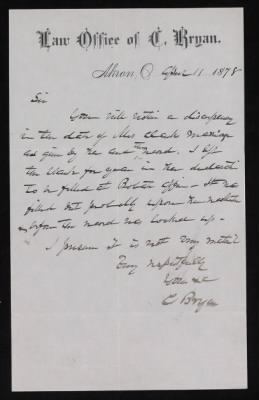 Law Office of C. Bryan.
Akron, O. April 11 1878
Sir
You will notice a discrepancy
in the date of Mrs marriage
as given by me and the record. I left
the blank for year in the
to be filled at Probate office - It was
filled out probably upon the
before the record was looked up -
I presume it is not very material
Very respectfully
Yours &c
C Bryan